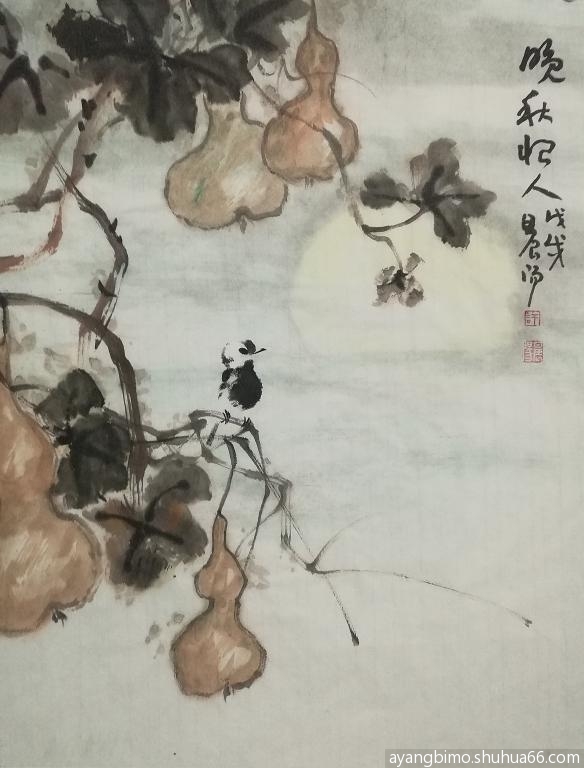 晚秋怡人
戊戌
晨阳
ayangbimo.shuhua66.com